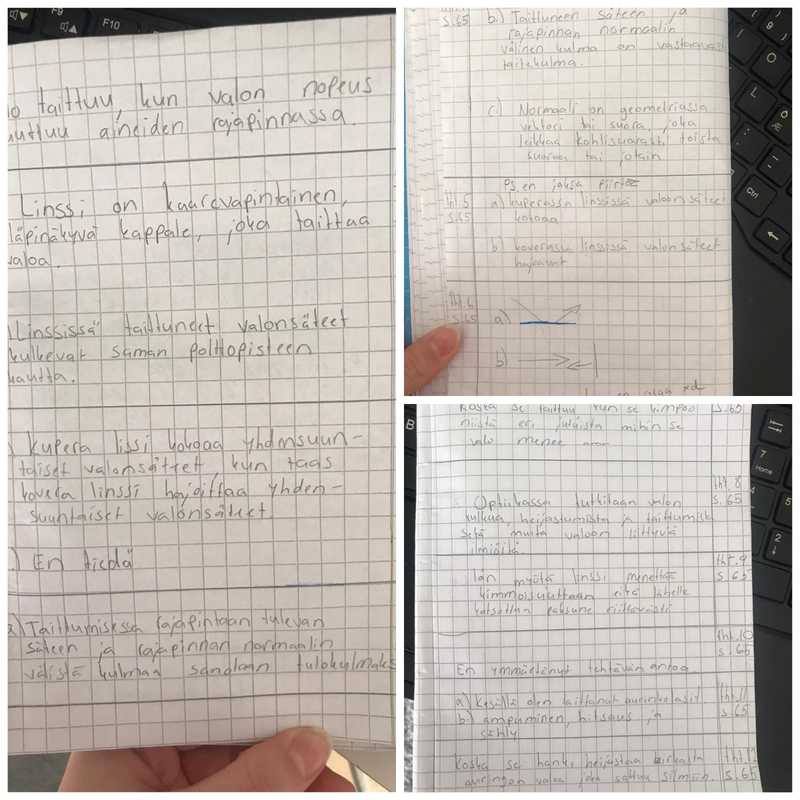 taittuu, kun valon nopeus
uuttuu aineiden rajapinnassa.
Linssi on kaarevapintainen,
läpinäkyvä kappale, joka taittaa
valoa.
Linssissä taittuneet valonsäteet
kulkevat saman polttopisteen
kautta.
Kupera lissi kokoaa yhdensuun-
taiset valonsätteet, kun taas
kovera linssi hajoittaa yhden-
suuntaiset valonsäteet
En tiedä
a) Taittumisessa rajapintaan tulevan
säteen ja rajapinnan normaalin
välistä kulmaa sanotaan tulokulmaks
s.65 b.) Taittuneen säteen ja
rajapinnan normaalin
välinen kulma on vastaavast
taitekulma.
c.) Normaali on geometriassa
vektori tai suora, joka
leikkaa kohtisuorasti toista
suoraa tai jotain
Ps. en jaksa piirtää
tht.5 a) kuperassa linssissä valonsäteet
s.65 kokoaa
b) koverassa linssissä valonsäteet
hajoavat
tht.6
s.65 a)
b)
Koska se taittuu kun se kimpoo s.65
niistä eri jutuista mihin se
valo menee
tht.8
Optiikassa tutkitaan valon s.65
kulkua, heijastumista ja taittumist
sekä muita valoon liittyviä
ilmiöitä.
tht.9
Iän myötä linssi menettää s.65
kimmoisuuttaan eikä lähelle
katsottaessa riittävästi
tht.10
s.65
En ymmärtänyt tehtävän antoa
a) Kesällä olen laittanut aurinkolasit. tht.11
b) ampuminen, hitsaus, ja s.65
sähly
Koska se hanki heijastaa kirkasta tht.12
auringon valoa joka sattuu silmiin. s.65
F9
F10
Ctrl
Home